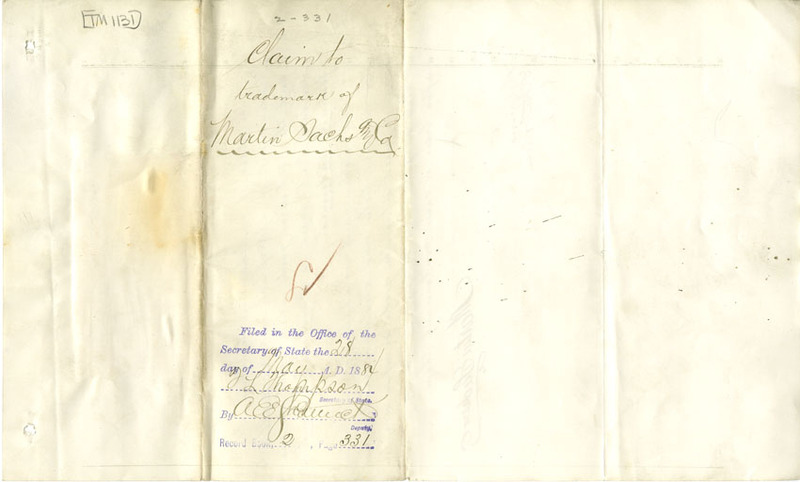 TM 1131
2-331
Claim to
trademark of
Martin Sachs & Co.
Filed in the Office of the
Secretary of State the 28
day of May A. D. 188
Thompson
Secretary of State.
By
Deputy.
Record Book, 2, Page 331